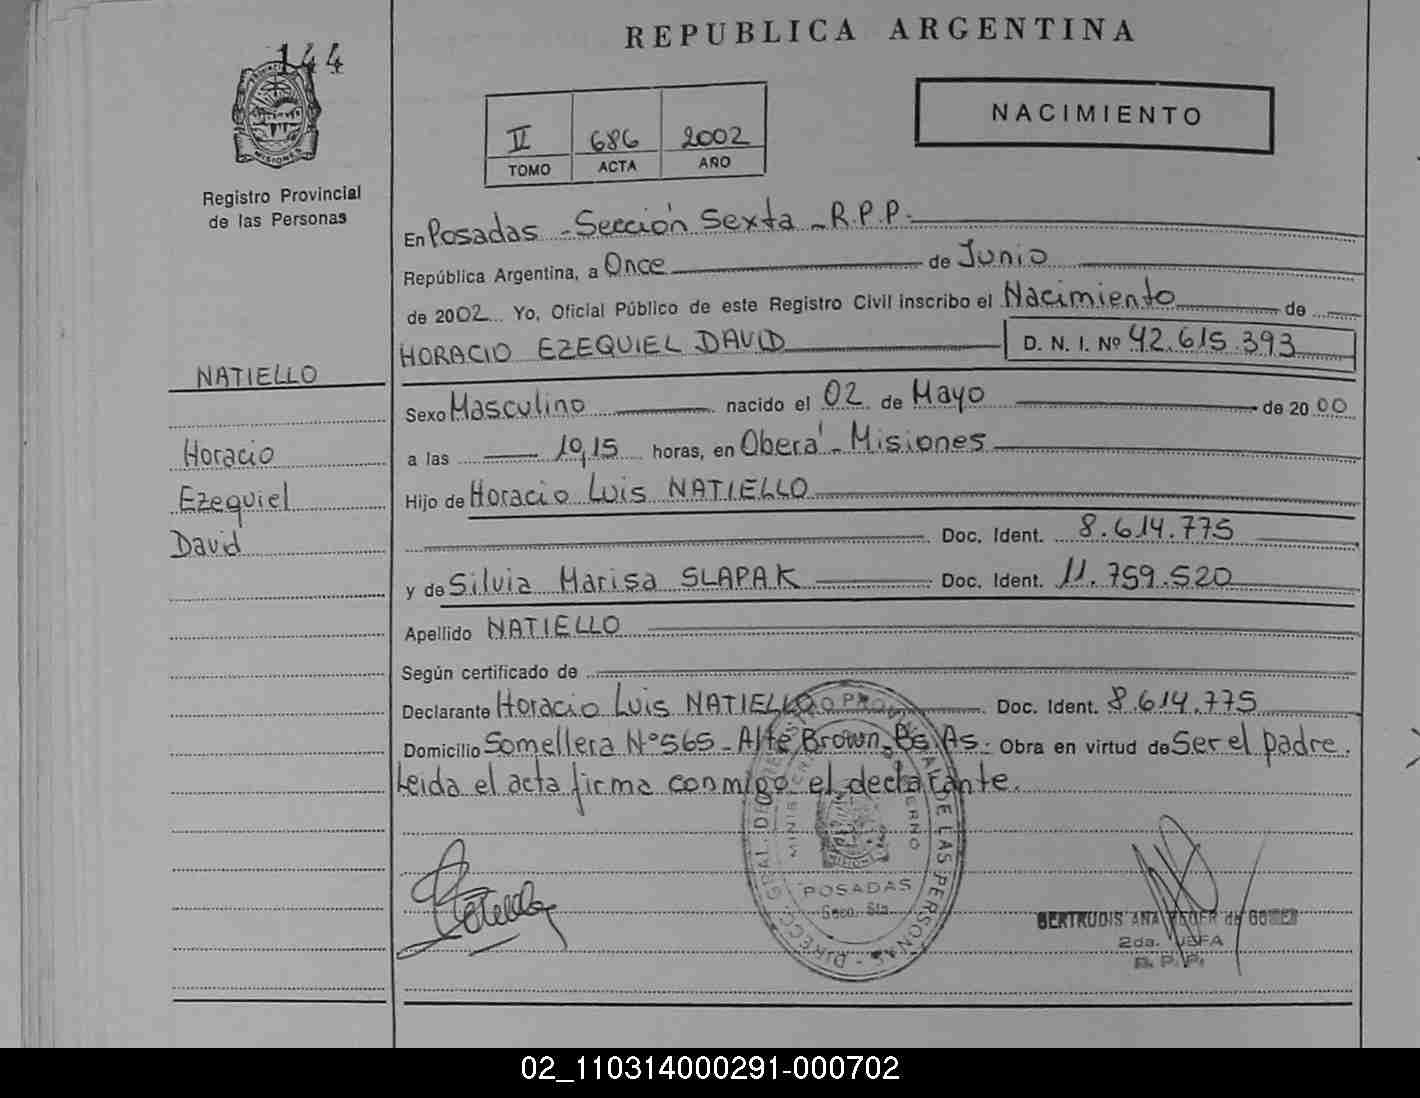 REPUBLICA ARGENTINA
144
MISIONES
Registro Provincial
de las Personas
II 686 2002
TOMO ACTA AÑO
NACIMIENTO
En Posadas - Sección Sexta - R.P.P.
República Argentina, a Once de Junio
de 2002 Yo, Oficial Público de este Registro Civil inscribo el Nacimiento de
HORACIO EZEQUIEL DAVID D. N. I. Nº 42.615.393
NATIELLO
Horacio
Ezequiel
David
Sexo Masculino nacido el 02 de Mayo de 2000
a las 10,15 horas, en Oberá - Misiones
Hijo de Horacio Luis NATIELLO
Doc. Ident. 8.614.775
y de Silvia Marisa SLAPAK Doc. Ident. 11.759.520
Apellido NATIELLO
Según certificado de
Declarante Horacio Luis NATIELLO Doc. Ident. 8.614.775
Domicilio Somellera Nº 565 - Alte Brown, Bs. As. Obra en virtud de Ser el padre.
Leida el acta firma conmigo el declarante.
DIRECC. GRAL. DE LAS PERSONAS
POSADAS
Secc. 6ta.
GERTRUDIS ANA de
2da. JEFA
R. P. P.
02_110314000291-000702